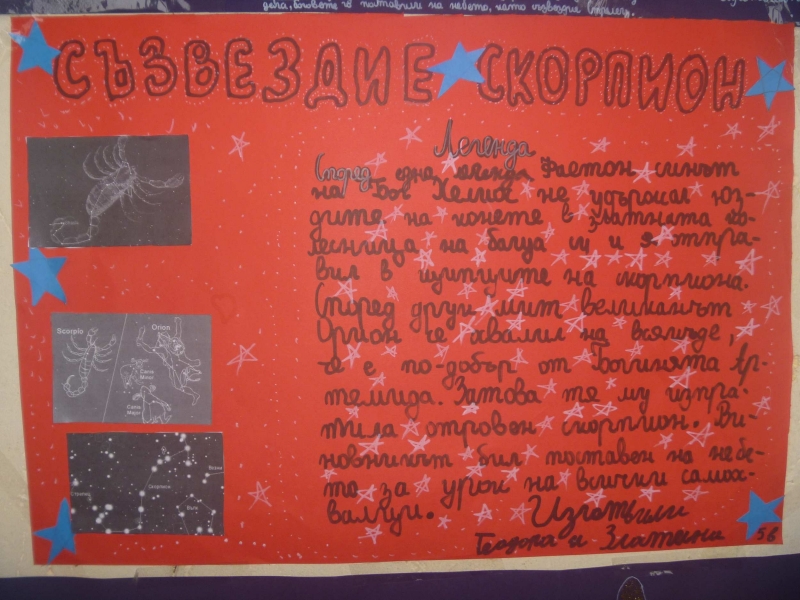 деца, боговете го поставили на небето, като съзвездие Стрелец.
СЪЗВЕЗДИЕ СКОРПИОН
Легенда
Според една легенда Фаетон синът
на Бог Хелиос не удържал юз-
дите на конете в златната ко-
лесница на баща си и я отпра-
вил в щипците на скорпиона.
Според друг мит великанът
Орион се хвалил на всякъде,
че е по-добър от Богинята Ар-
темида. Затова тя му изпра-
тила отровен скорпион. Ви-
новникът бил поставен на небе-
то за урок на всички самох-
валци.
Изготвили
Теодора и Златина 5б
Scorpio
Orion
Canis
Minor
Canis
Major
Стрелец
Скорпион
Везни
Вълк